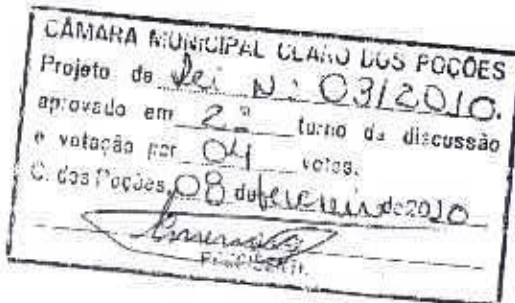 CÂMARA MUNICIPAL CLARO DOS POÇÕES
Projeto de Lei N: 03/2010.
aprovado em 2ª turno da discussão
e votação por 04 votos.
C. dos Poções, 08 de fevereiro de 2010
PRESIDENTE